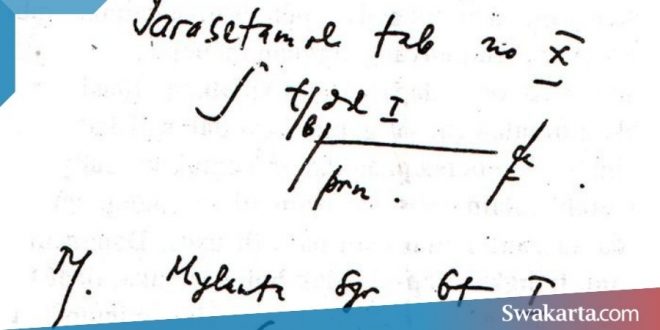 Parasetamol tab no X
ʃ t/dd I
prn.
R/. Mylanta Syr bt I
Swakarta.com